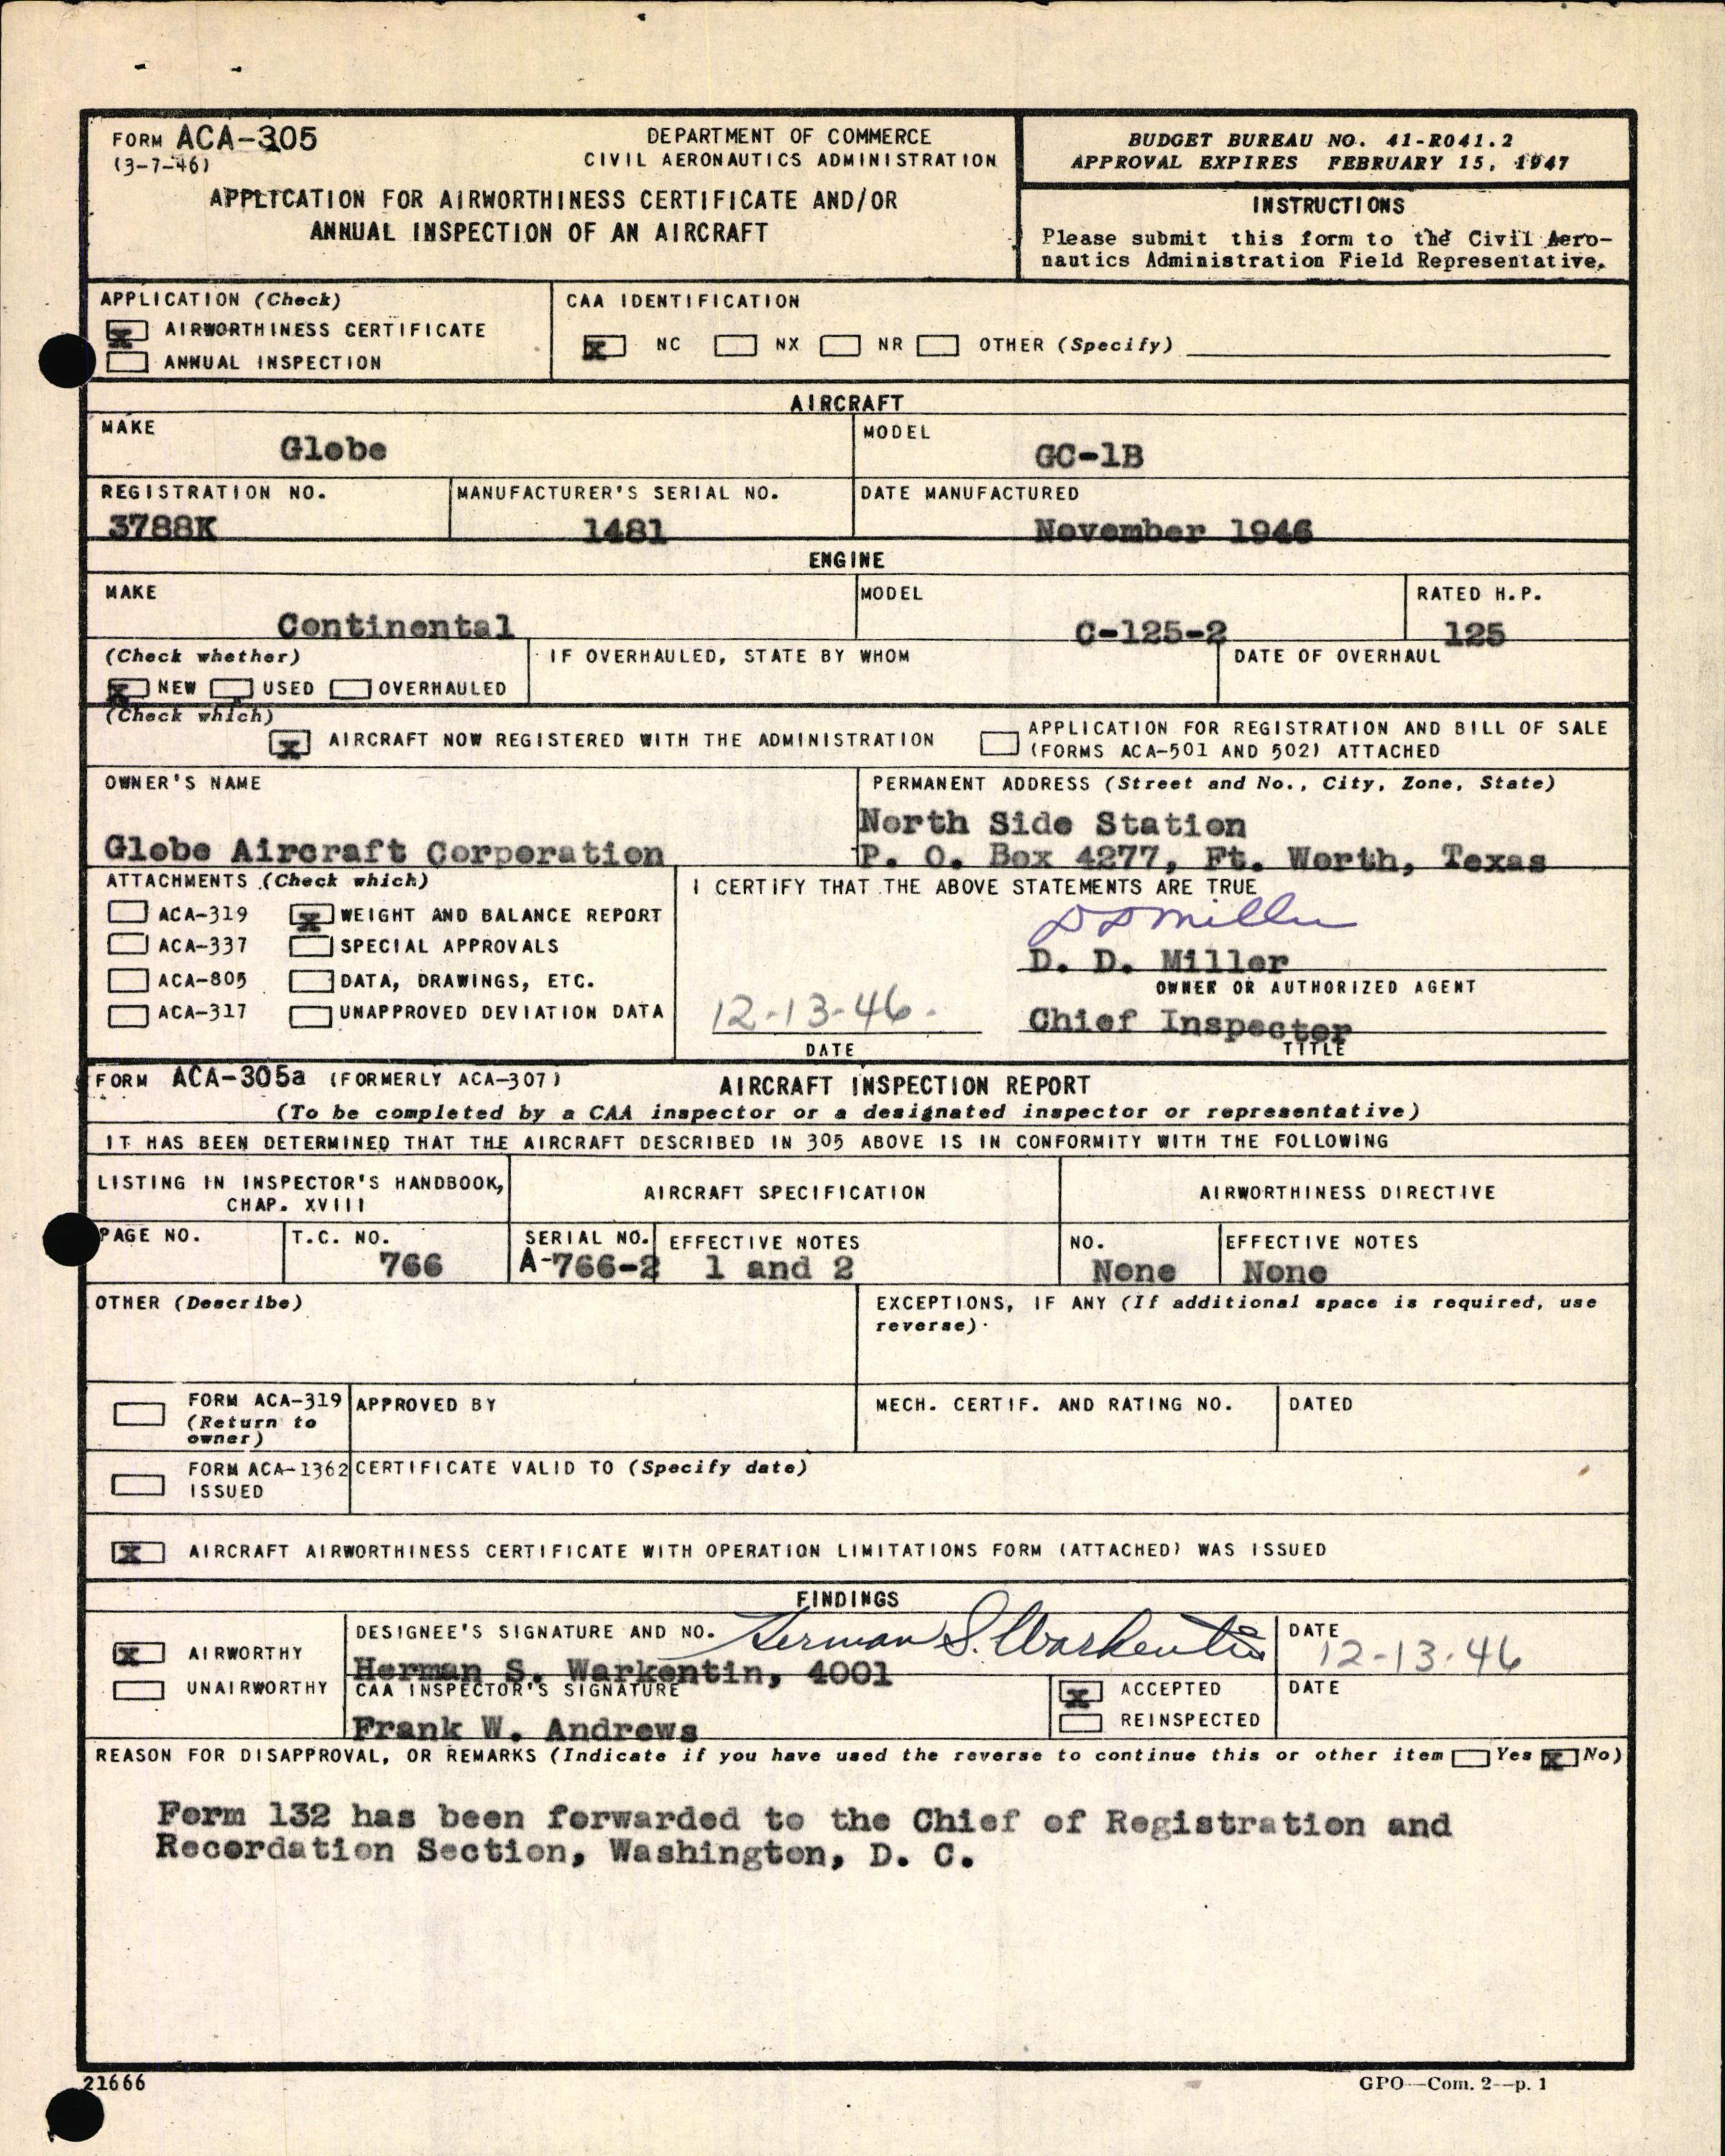 FORM ACA-305
(3-7-46)
DEPARTMENT OF COMMERCE
CIVIL AERONAUTICS ADMINISTRATION
APPLICATION FOR AIRWORTHINESS CERTIFICATE AND/OR
ANNUAL INSPECTION OF AN AIRCRAFT
BUDGET BUREAU NO. 41-R041.2
APPROVAL EXPIRES FEBRUARY 15, 1947
INSTRUCTIONS
Please submit this form to the Civil Aero-
nautics Administration Field Representative.
APPLICATION (Check)
X AIRWORTHINESS CERTIFICATE
ANNUAL INSPECTION
CAA IDENTIFICATION
X NC NX NR OTHER (Specify)
AIRCRAFT
MAKE
Globe
MODEL
GC-1B
REGISTRATION NO.
3788K
MANUFACTURER'S SERIAL NO.
1481
DATE MANUFACTURED
November 1946
ENGINE
MAKE
Continental
MODEL
C-125-2
RATED H.P.
125
(Check whether)
X NEW USED OVERHAULED
IF OVERHAULED, STATE BY WHOM
DATE OF OVERHAUL
(Check which)
X AIRCRAFT NOW REGISTERED WITH THE ADMINISTRATION
APPLICATION FOR REGISTRATION AND BILL OF SALE
(FORMS ACA-501 AND 502) ATTACHED
OWNER'S NAME
Globe Aircraft Corporation
PERMANENT ADDRESS (Street and No., City, Zone, State)
North Side Station
P. O. Box 4277, Ft. Worth, Texas
ATTACHMENTS (Check which)
ACA-319 X WEIGHT AND BALANCE REPORT
ACA-337 SPECIAL APPROVALS
ACA-805 DATA, DRAWINGS, ETC.
ACA-317 UNAPPROVED DEVIATION DATA
I CERTIFY THAT THE ABOVE STATEMENTS ARE TRUE
D D Miller
D. D. Miller
OWNER OR AUTHORIZED AGENT
12-13-46.
DATE
Chief Inspector
TITLE
FORM ACA-305a (FORMERLY ACA-307)
AIRCRAFT INSPECTION REPORT
(To be completed by a CAA inspector or a designated inspector or representative)
IT HAS BEEN DETERMINED THAT THE AIRCRAFT DESCRIBED IN 305 ABOVE IS IN CONFORMITY WITH THE FOLLOWING
LISTING IN INSPECTOR'S HANDBOOK,
CHAP. XVIII
AIRCRAFT SPECIFICATION
AIRWORTHINESS DIRECTIVE
PAGE NO.
T.C. NO.
766
SERIAL NO.
A-766-2
EFFECTIVE NOTES
1 and 2
NO.
None
EFFECTIVE NOTES
None
OTHER (Describe)
EXCEPTIONS, IF ANY (If additional space is required, use
reverse).
FORM ACA-319
(Return to
owner)
APPROVED BY
MECH. CERTIF. AND RATING NO.
DATED
FORM ACA-1362
ISSUED
CERTIFICATE VALID TO (Specify date)
X AIRCRAFT AIRWORTHINESS CERTIFICATE WITH OPERATION LIMITATIONS FORM (ATTACHED) WAS ISSUED
FINDINGS
X AIRWORTHY
UNAIRWORTHY
DESIGNEE'S SIGNATURE AND NO. Herman S. Warkentin
Herman S. Warkentin, 4001
DATE
12-13-46
CAA INSPECTOR'S SIGNATURE
Frank W. Andrews
X ACCEPTED
REINSPECTED
DATE
REASON FOR DISAPPROVAL, OR REMARKS (Indicate if you have used the reverse to continue this or other item Yes X No)
Form 132 has been forwarded to the Chief of Registration and
Recordation Section, Washington, D. C.
21666
GPO—Com. 2—p. 1